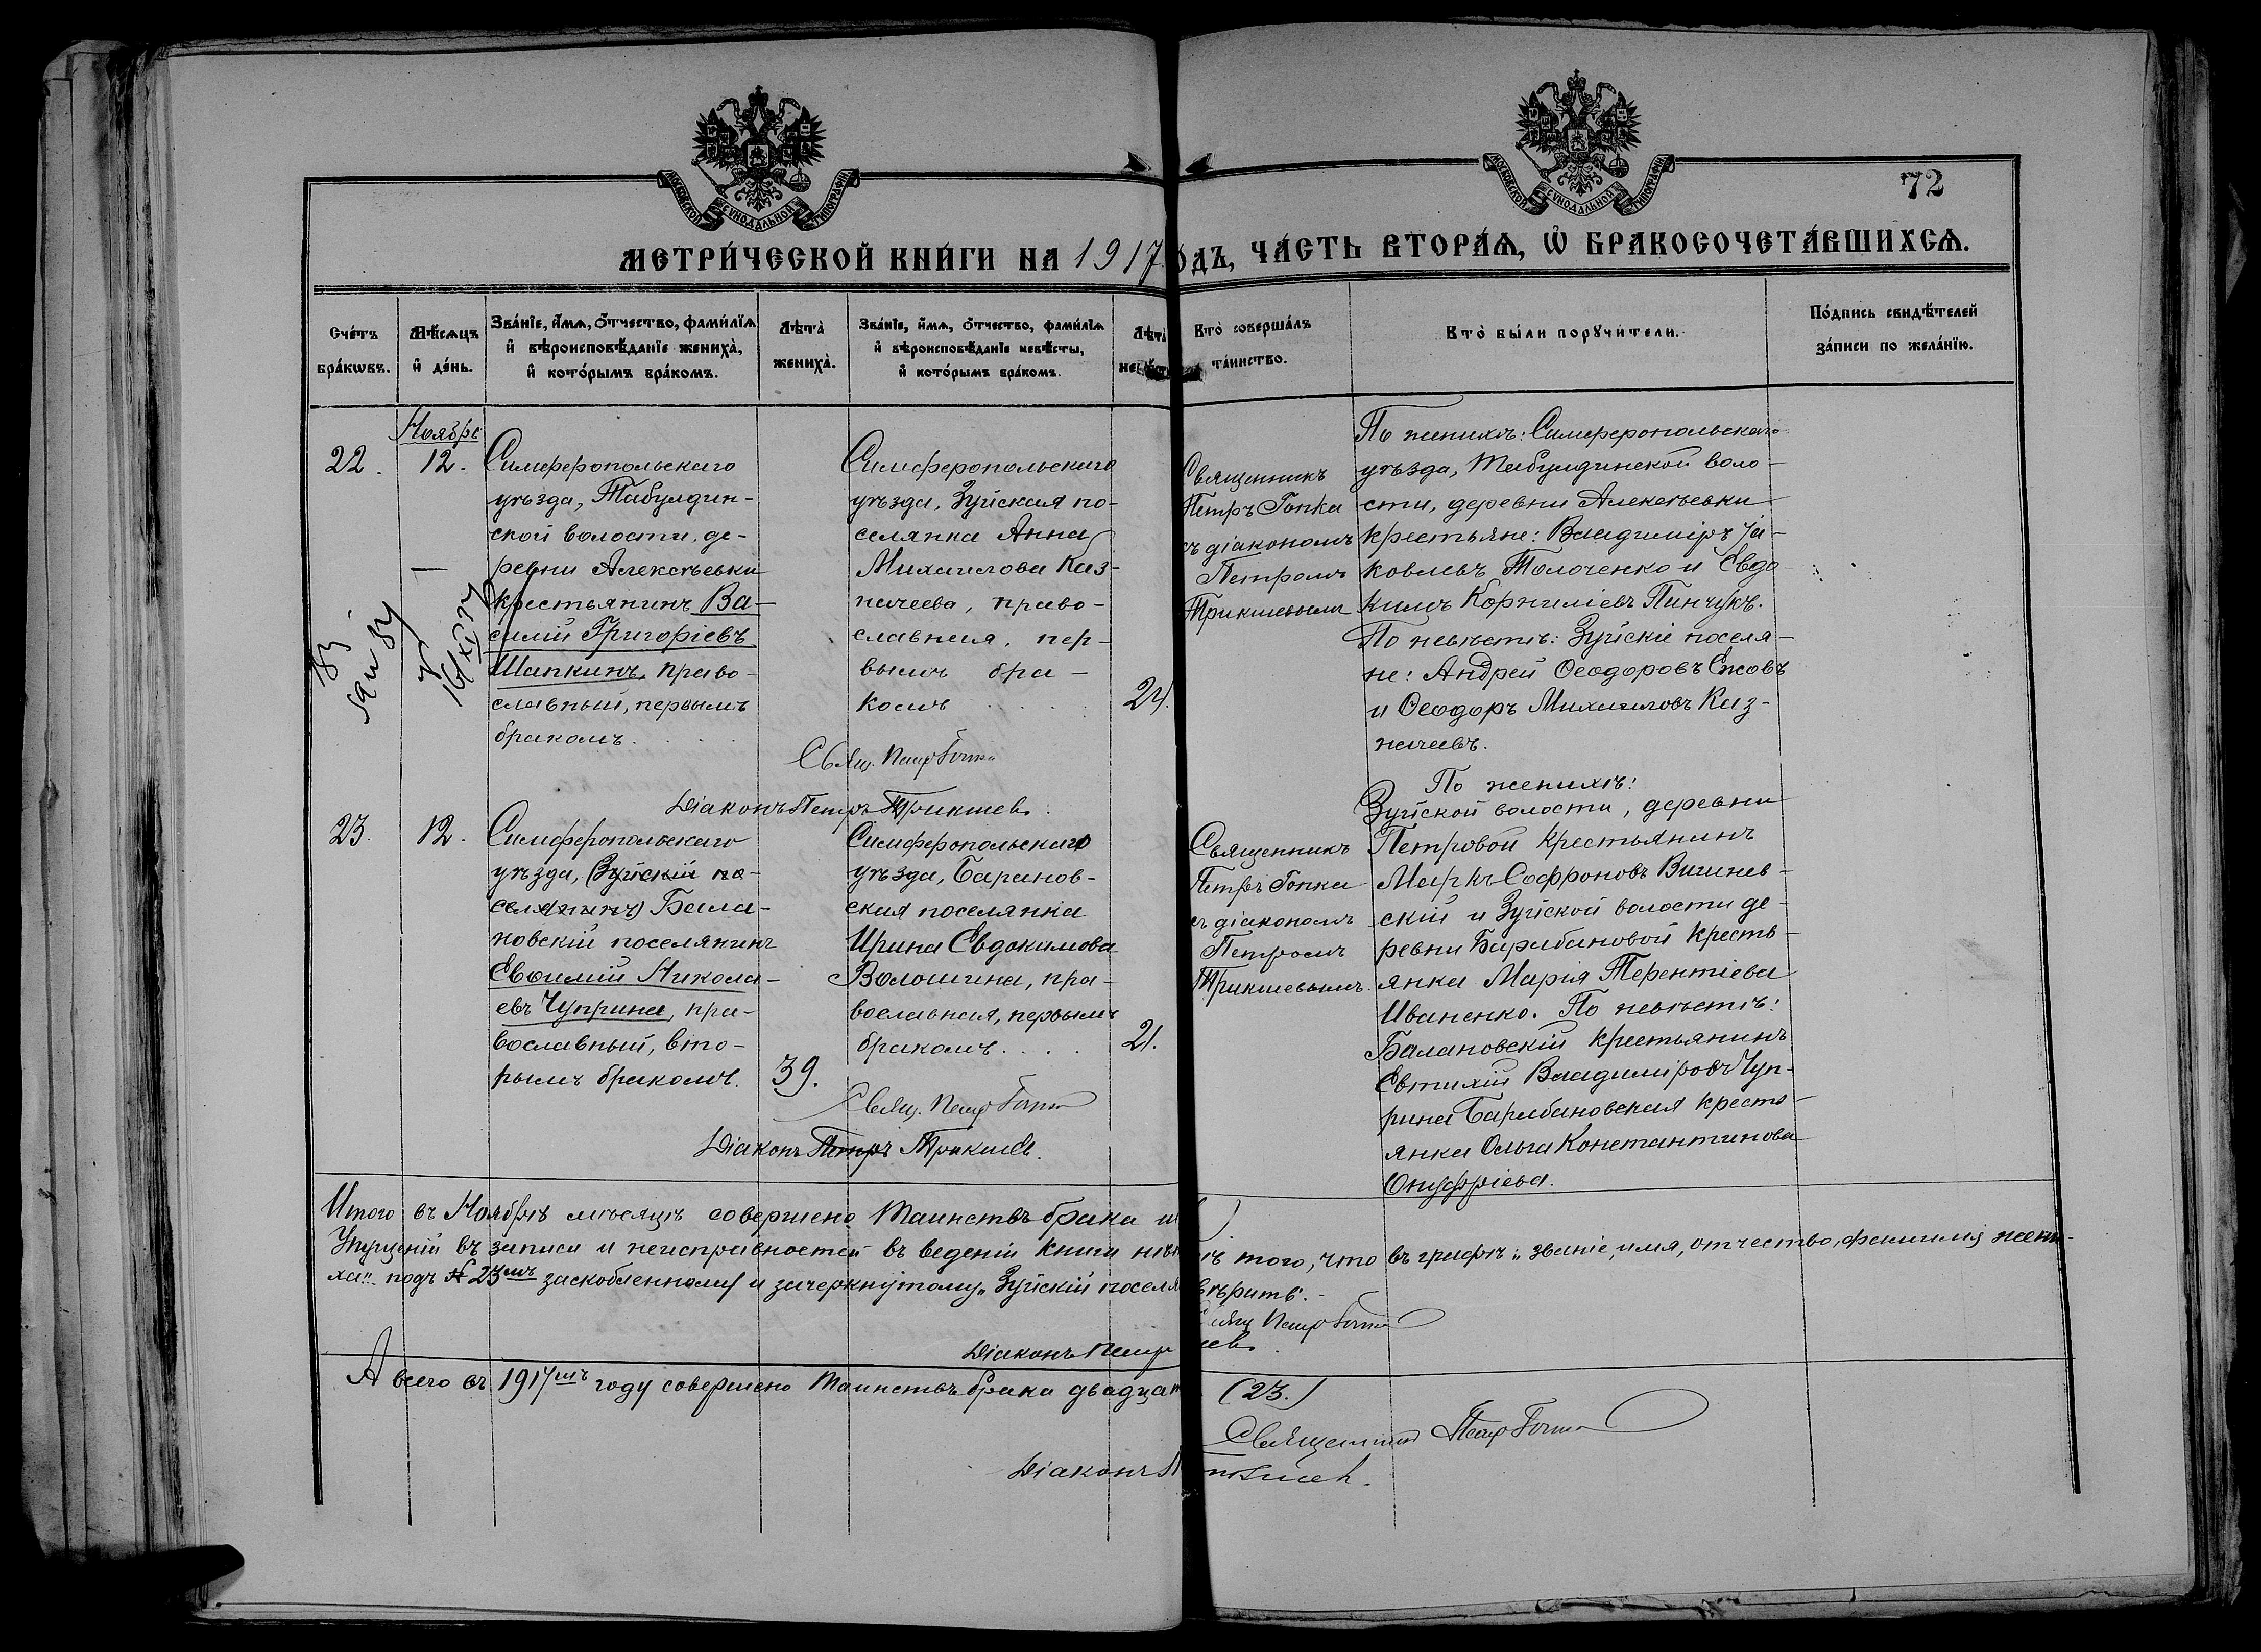 МОСКОВСКОЙ СУНОДАЛЬНОЙ ТИПОГРАФІИ
МОСКОВСКОЙ СУНОДАЛЬНОЙ ТИПОГРАФІИ
72
МЕТРИ́ЧЕСКОЙ КНИ́ГИ НА 1917
ОДЪ, ЧА́СТЬ ВТОРА́Ѧ, Ѽ БРАКОСОЧЕТА́ВШИХСѦ.
Сче́тъ
бра́кѡвъ.
Мѣ́сѧцъ
и҆ де́нь.
Зва́нїе, и҆́мѧ, ѻ҆́тчество, фами́лїѧ
и҆ вѣроисповѣ́данїе жениха̀,
и҆ кото́рымъ бра́комъ.
Лѣта̀
жениха̀.
Зва́нїе, и҆́мѧ, ѻ҆́тчество, фами́лїѧ
и҆ вѣроисповѣ́данїе невѣ́сты,
и҆ кото́рымъ бра́комъ.
Лѣта̀
Кто̀ соверша́лъ
та́инство.
Кто̀ бы́ли порꙋчи́тели.
По́дпись свидѣ́телей
за́писи по жела́нїю.
Ноябрь
22.
12.
Симферопольскаго
уѣзда, Табулдин-
ской волости, де-
ревни Алексѣевки
крестьянинъ Ва-
силій Григоріевъ
Шапкинъ, право-
славный, первымъ
бракомъ.
Симферопольскаго
уѣзда, Зуйская по-
селянка Анна
Михаилова Каз-
начеева, право-
славная, пер-
вымъ бра-
комъ
24.
Священникъ
Петръ Гопка
съ діакономъ
Петромъ
Трикшевымъ
По женихѣ: Симферопольскаго
уѣзда, Табулдинской воло-
сти, деревни Алексѣевки
крестьяне: Владиміръ Іа-
ковлевъ Толоченко и Евдо-
кимъ Корниліевъ Пинчукъ.
По невѣстѣ: Зуйскіе поселя-
не: Андрей Ѳеодоровъ Ежовъ
и Ѳеодоръ Михаиловъ Каз-
начеевъ.
Свящ. Петр Гопка
Діаконъ Петръ Трикшевъ.
23.
12.
Симферопольскаго
уѣзда, (Зуйскій по-
селянинъ) Бала-
новскій поселянинъ
Евѳимій Никола-
евъ Чуприна, пра-
вославный, вто-
рымъ бракомъ.
39.
Симферопольскаго
уѣзда, Баранов-
ская поселянка
Ирина Евдокимова
Волошина, пра-
вославная, первымъ
бракомъ
21.
Священникъ
Петръ Гопка
съ діакономъ
Петромъ
Трикшевымъ.
По женихѣ:
Зуйской волости, деревни
Петровой крестьянинъ
Маркъ Софроновъ Вишнев-
скій и Зуйской волости де-
ревни Барабановой кресть-
янка Марія Терентіева
Иваненко. По невѣстѣ:
Балановскій крестьянинъ
Евтихій Владиміровъ Чуп-
рина Барабановская кресть-
янка Ольга Константинова
Онуфріева.
Свящ. Петр Гопка
Діаконъ Петръ Трикшевъ.
Итого въ Ноябрѣ мѣсяцѣ совершено Таинствъ брака
Упущеній въ записи и неисправностей въ веденіи книги
того, что въ графѣ „званіе, имя, отчество, фамилія жени-
ха" подъ № 23мъ заскобленному и зачеркнутому „Зуйскій поселя
вѣрить".
Свящ Петр Гопка
Діаконъ Петр
А всего въ 1917мъ году совершено Таинствъ брака двадцат
(23.)
Священникъ Петр Гопка
Діаконъ